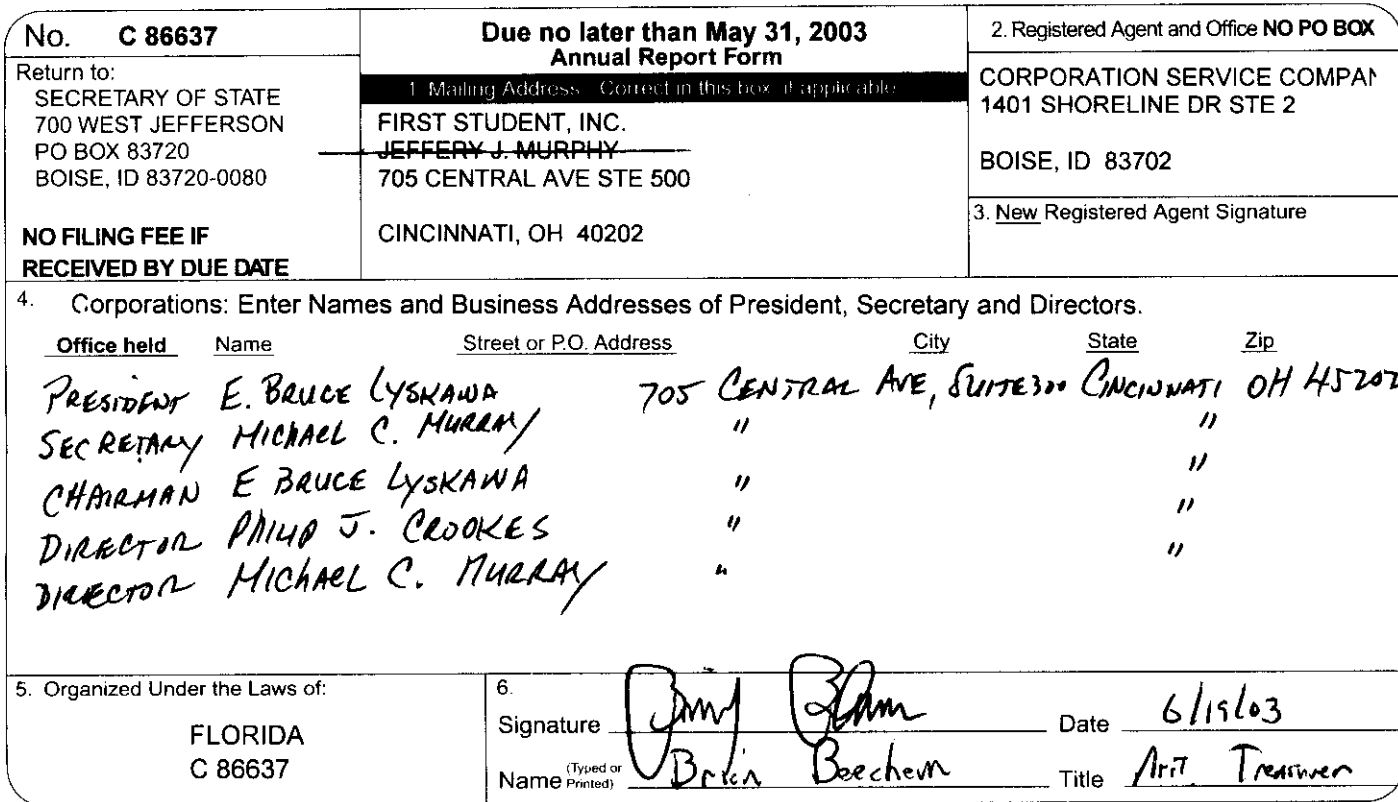 No. C 86637
Return to:
SECRETARY OF STATE
700 WEST JEFFERSON
PO BOX 83720
BOISE, ID 83720-0080
NO FILING FEE IF
RECEIVED BY DUE DATE
Due no later than May 31, 2003
Annual Report Form
1. Mailing Address - Correct in this box, if applicable
FIRST STUDENT, INC.
JEFFERY J. MURPHY
705 CENTRAL AVE STE 500
CINCINNATI, OH 40202
2. Registered Agent and Office NO PO BOX
CORPORATION SERVICE COMPAN
1401 SHORELINE DR STE 2
BOISE, ID 83702
3. New Registered Agent Signature
4. Corporations: Enter Names and Business Addresses of President, Secretary and Directors.
Office held Name Street or P.O. Address City State Zip
PRESIDENT E. BRUCE LYSKAWA 705 CENTRAL AVE, SUITE 300 CINCINNATI OH 45202
SECRETARY MICHAEL C. MURRAY " "
CHAIRMAN E BRUCE LYSKAWA " "
DIRECTOR PHILIP J. CROOKES " "
DIRECTOR MICHAEL C. MURRAY " "
5. Organized Under the Laws of:
FLORIDA
C 86637
6.
Signature Date 6/19/03
Name (Typed or Printed) Brian Beechem Title Asst. Treasurer